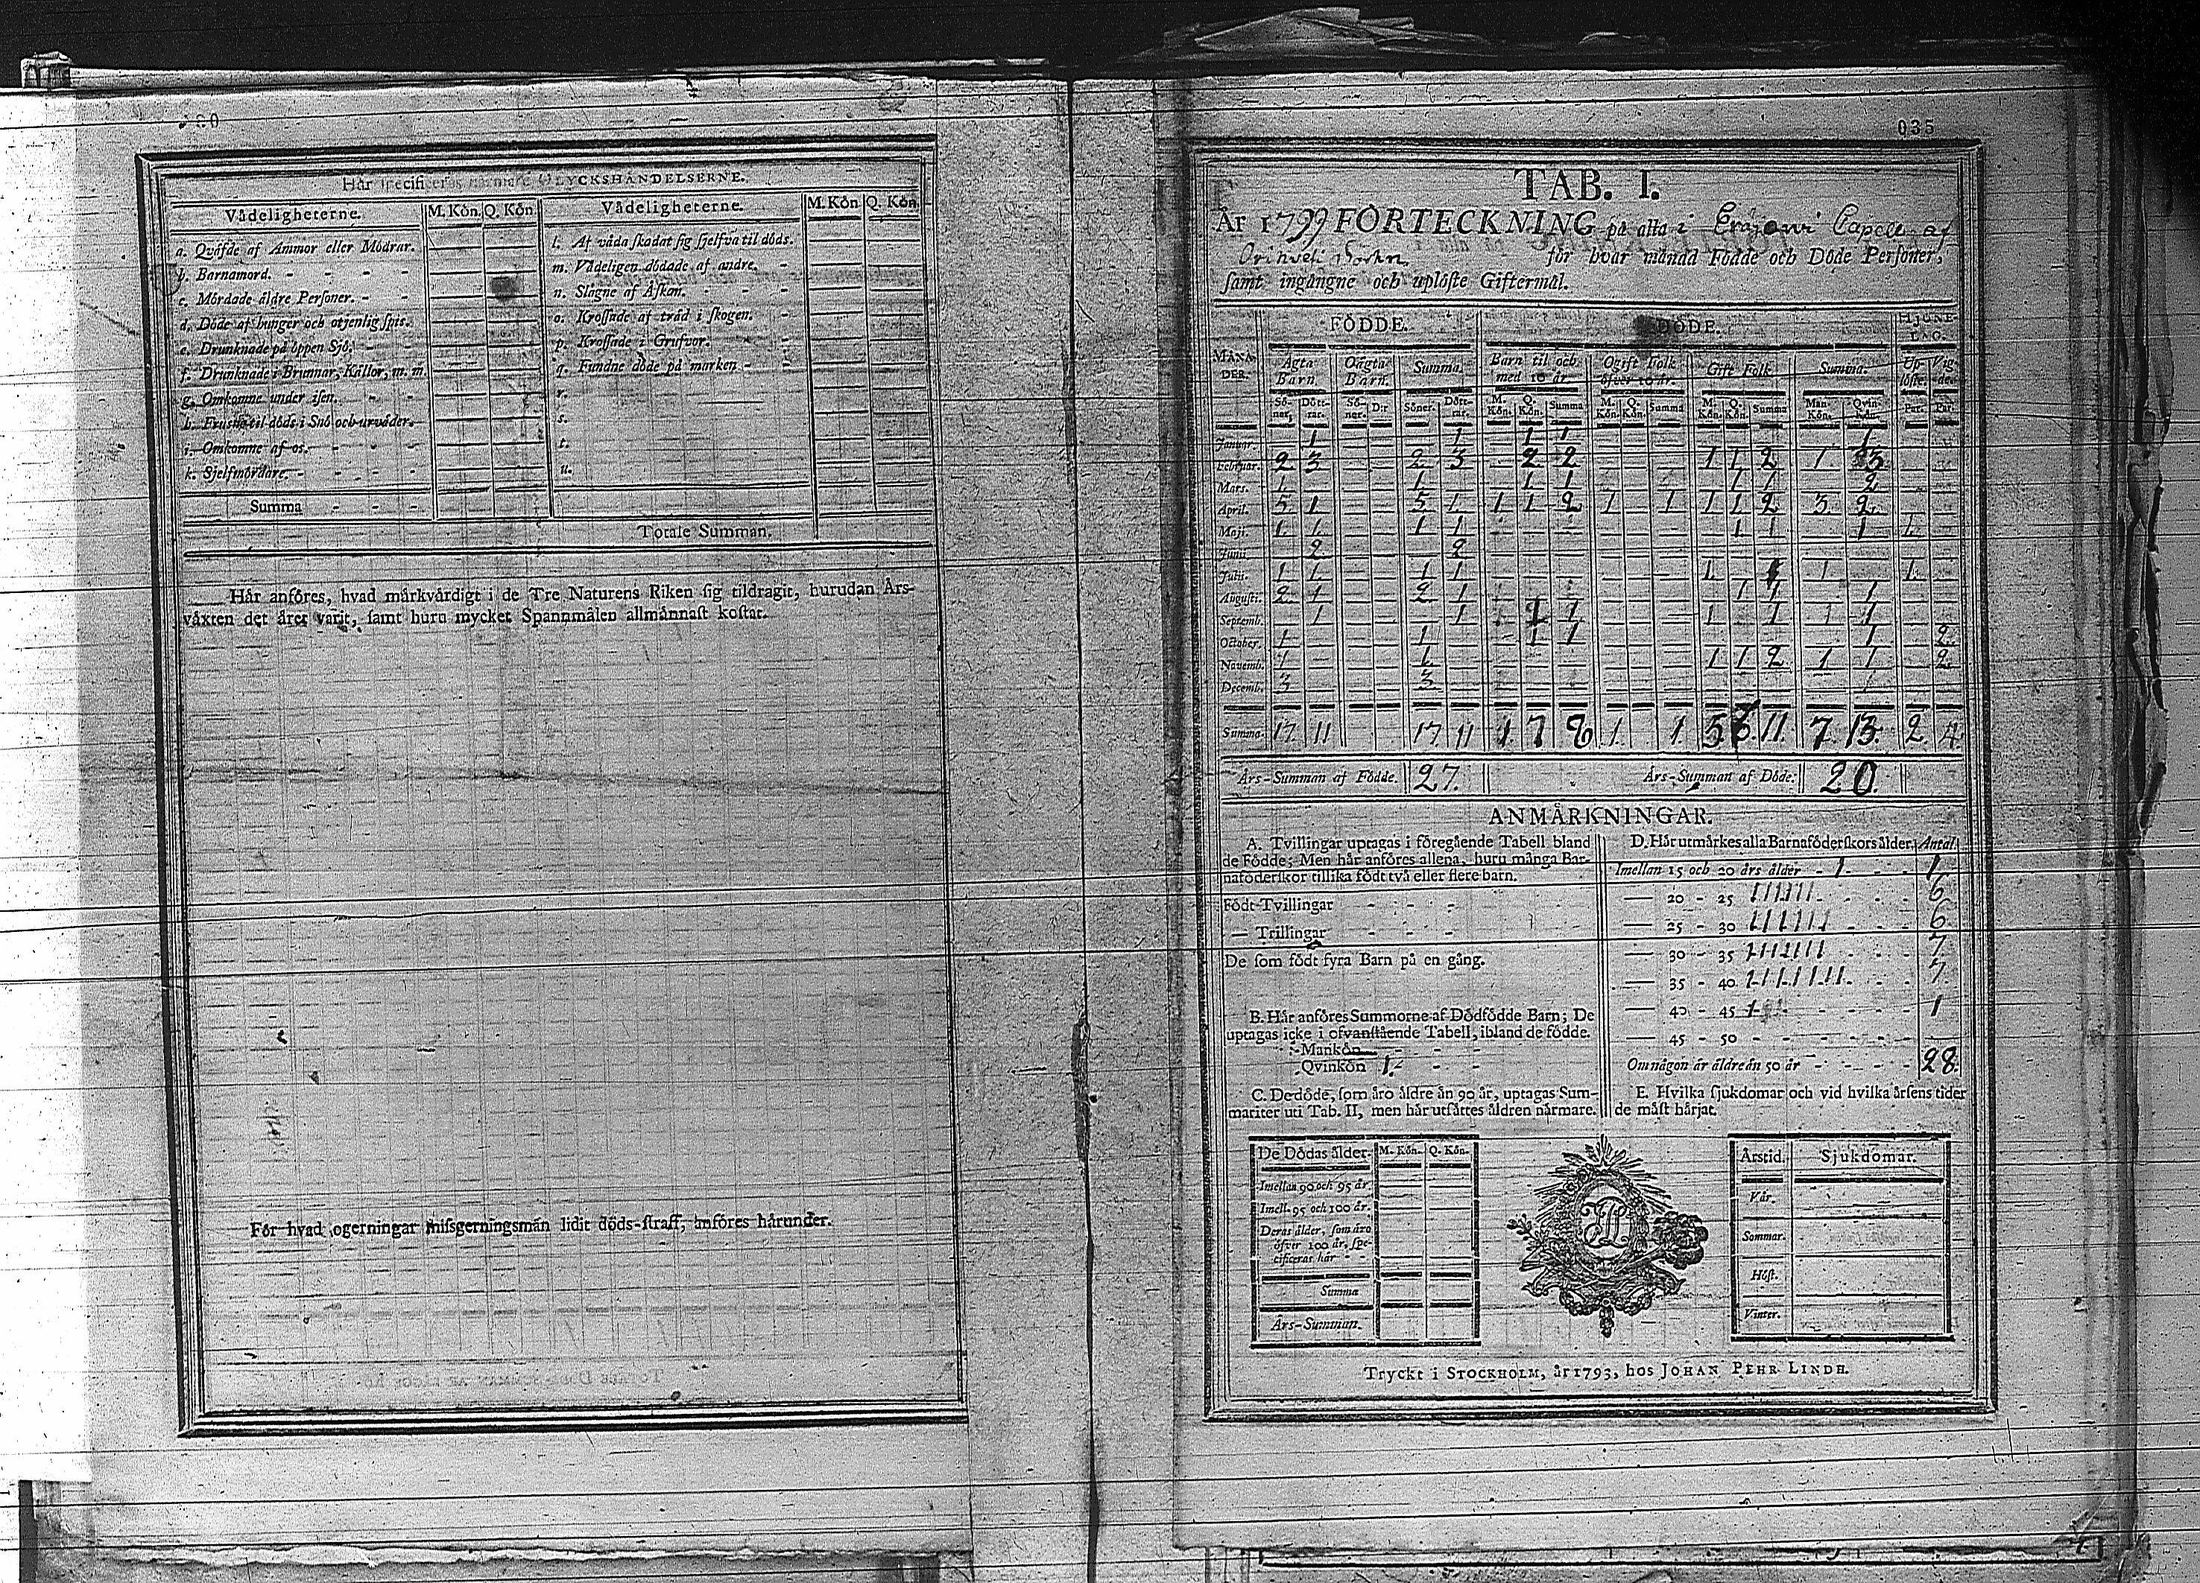 Här specificeras närmare OLYCKSHÄNDELSERNE.
Vådeligheterne. M. Kön. Q. Kön. Vådeligheterne. M. Kön Q. Kön.
a. Qväfde af Ammor eller Mödrar. l. Af våda skadat sig sjelfva til döds.
b. Barnamord. m. Vådeligen dödade af andre.
c. Mördade äldre Personer. n. Slagne af Åskan.
d. Döde af hunger och otjenlig spis. o. Krossade af träd i skogen.
e. Drunknade på öppen Sjö. p. Krossade i Grufvor.
f. Drunknade i Brunnar, Källor, m. m. q. Fundne döde på marken
g. Omkomne under isen. r.
h. Frusne til döds i Snö och urväder. s.
i. Omkomne af os. t.
k. Sjelfmördare. u.
Summa
Totale Summan.
Här anföres, hvad märkvärdigt i de Tre Naturens Riken sig tildragit, hurudan Års-
växten det året varit, samt huru mycket Spannmålen allmännast kostat.
För hvad ogerningar missgerningsmän lidit döds-straff, anföres härunder.
035
TAB. I.
År 1799 FÖRTECKNING på alla i Capell af
för hvar månad Födde och Döde Personer,
samt ingångne och uplöste Giftermål.
MÅNA-DER. FÖDDE. DÖDE. HJONE-LAG.
Ägta Barn. Oägta Barn. Summa. Barn til och med 10 år. Ogift Folk öfver 10 år. Gift Folk. Summa. Up-löste. Vig-de.
Sö-ner. Dött-rar. Sö-ner. D:r Söner. Dött-rar. M. Kön. Q. Kön. Summa M. Kön. Q. Kön. Summa M. Kön. Q. Kön. Summa Man-Kön. Qvin-kön. Par. Par.
Januar. 1 1 1 1 1
Februar. 2 3 2 3 2 2 1 1 2 1 3
Mars. 1 1 1 1 1 1 2
April. 5 1 5 1 1 1 2 1 1 1 1 2 3 2
Maji. 1 1 1 1 1 1 1 1
Junii 2 2
Julii. 1 1 1 1 1 1 1 1
Augusti. 2 1 2 1 1 1 1
Septemb. 1 1 1 1 1 1 1 1
October. 1 1 1 1 1 2
Novemb. 1 1 1 1 2 1 1 2
Decemb. 3 3
Summa. 17 11 17 11 1 7 8 1 1 5 6 11 7 13 2 4
Års-Summan af Födde. 27. Års-Summan af Döde. 20.
ANMÄRKNINGAR.
A. Tvillingar uptagas i föregående Tabell bland
de Födde; Men här anföres allena, huru många Bar-
naföderskor tillika födt två eller flere barn.
Födt Tvillingar
— Trillingar
De som födt fyra Barn på en gång.
B. Här anföres Summorne af Dödfödde Barn; De
uptagas icke i ofvanstående Tabell, ibland de födde.
Mankön
Qvinkön 1.
C. De döde, som äro äldre än 90 år, uptagas Sum-
mariter uti Tab. II, men här utsättes åldren närmare.
D. Här utmärkes alla Barnaföderskors ålder. Antal.
Imellan 15 och 20 års ålder 1 1
— 20 - 25 111111 6
— 25 - 30 111111 6
— 30 - 35 1111111 7
— 35 - 40 1111111 7
— 40 - 45 1 1
— 45 - 50
Om någon är äldre än 50 år 28
E. Hvilka sjukdomar och vid hvilka årsens tider
de mäst härjat.
De Dödas ålder. M. Kön. Q. Kön.
Imellan 90 och 95 år.
Imell. 95 och 100 år.
Deras ålder, som äro
öfver 100 år, spe-
cificeras här
Summa
Års-Summan.
Årstid. Sjukdomar.
Vår.
Sommar.
Höst.
Vinter.
Tryckt i STOCKHOLM, år 1793, hos JOHAN PEHR LINDH.